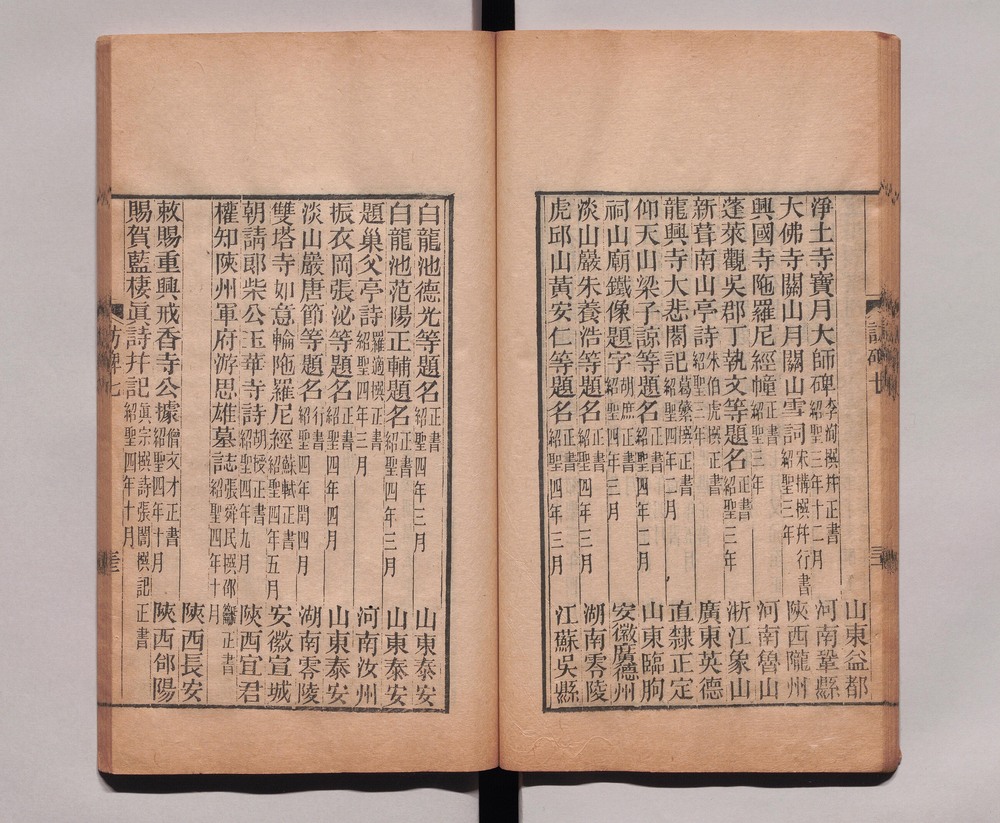 山東益都
淨土寺寶月大師碑 李洵撰幷正書 紹聖三年十二月 河南鞏縣
大佛寺關山月關山雪詞 宋構撰幷行書 紹聖三年 陝西隴州
興國寺陁羅尼經幢 正書 紹聖三年 河南魯山
蓬萊觀吳郡丁執文等題名 正書 紹聖三年 浙江象山
新葺南山亭詩 朱伯虎撰 正書 紹聖三年 廣東英德
龍興寺大悲閣記 葛蘩撰 正書 紹聖四年二月 直隸正定
仰天山梁子諒等題名 正書 紹聖四年二月 山東臨朐
祠山廟鐵像題字 胡庶正書 紹聖四年三月 安徽廣德州
淡山巖朱養浩等題名 正書 紹聖四年三月 湖南零陵
虎邱山黃安仁等題名 正書 紹聖四年三月 江蘇吳縣
訪碑七
白龍池德光等題名 正書 紹聖四年三月 山東泰安
白龍池范陽正輔題名 正書 紹聖四年三月 山東泰安
題巢父亭詩 羅適撰 正書 紹聖四年三月 河南汝州
振衣岡張泌等題名 正書 紹聖四年四月 山東泰安
淡山巖唐節等題名 行書 紹聖四年閏四月 湖南零陵
雙塔寺如意輪陁羅尼經 蘇軾正書 紹聖四年五月 安徽宣城
朝請郎柴公玉華寺詩 胡授正書 紹聖四年九月 陝西宜君
權知陝州軍府游思雄墓誌 張舜民撰 邵䶵正書 紹聖四年十月
陝西長安
敕賜重興戒香寺公據 僧文才正書 紹聖四年十月 陝西郃陽
賜賀藍棲眞詩幷記 眞宗撰詩 張閣撰記 正書 紹聖四年十月
訪碑七